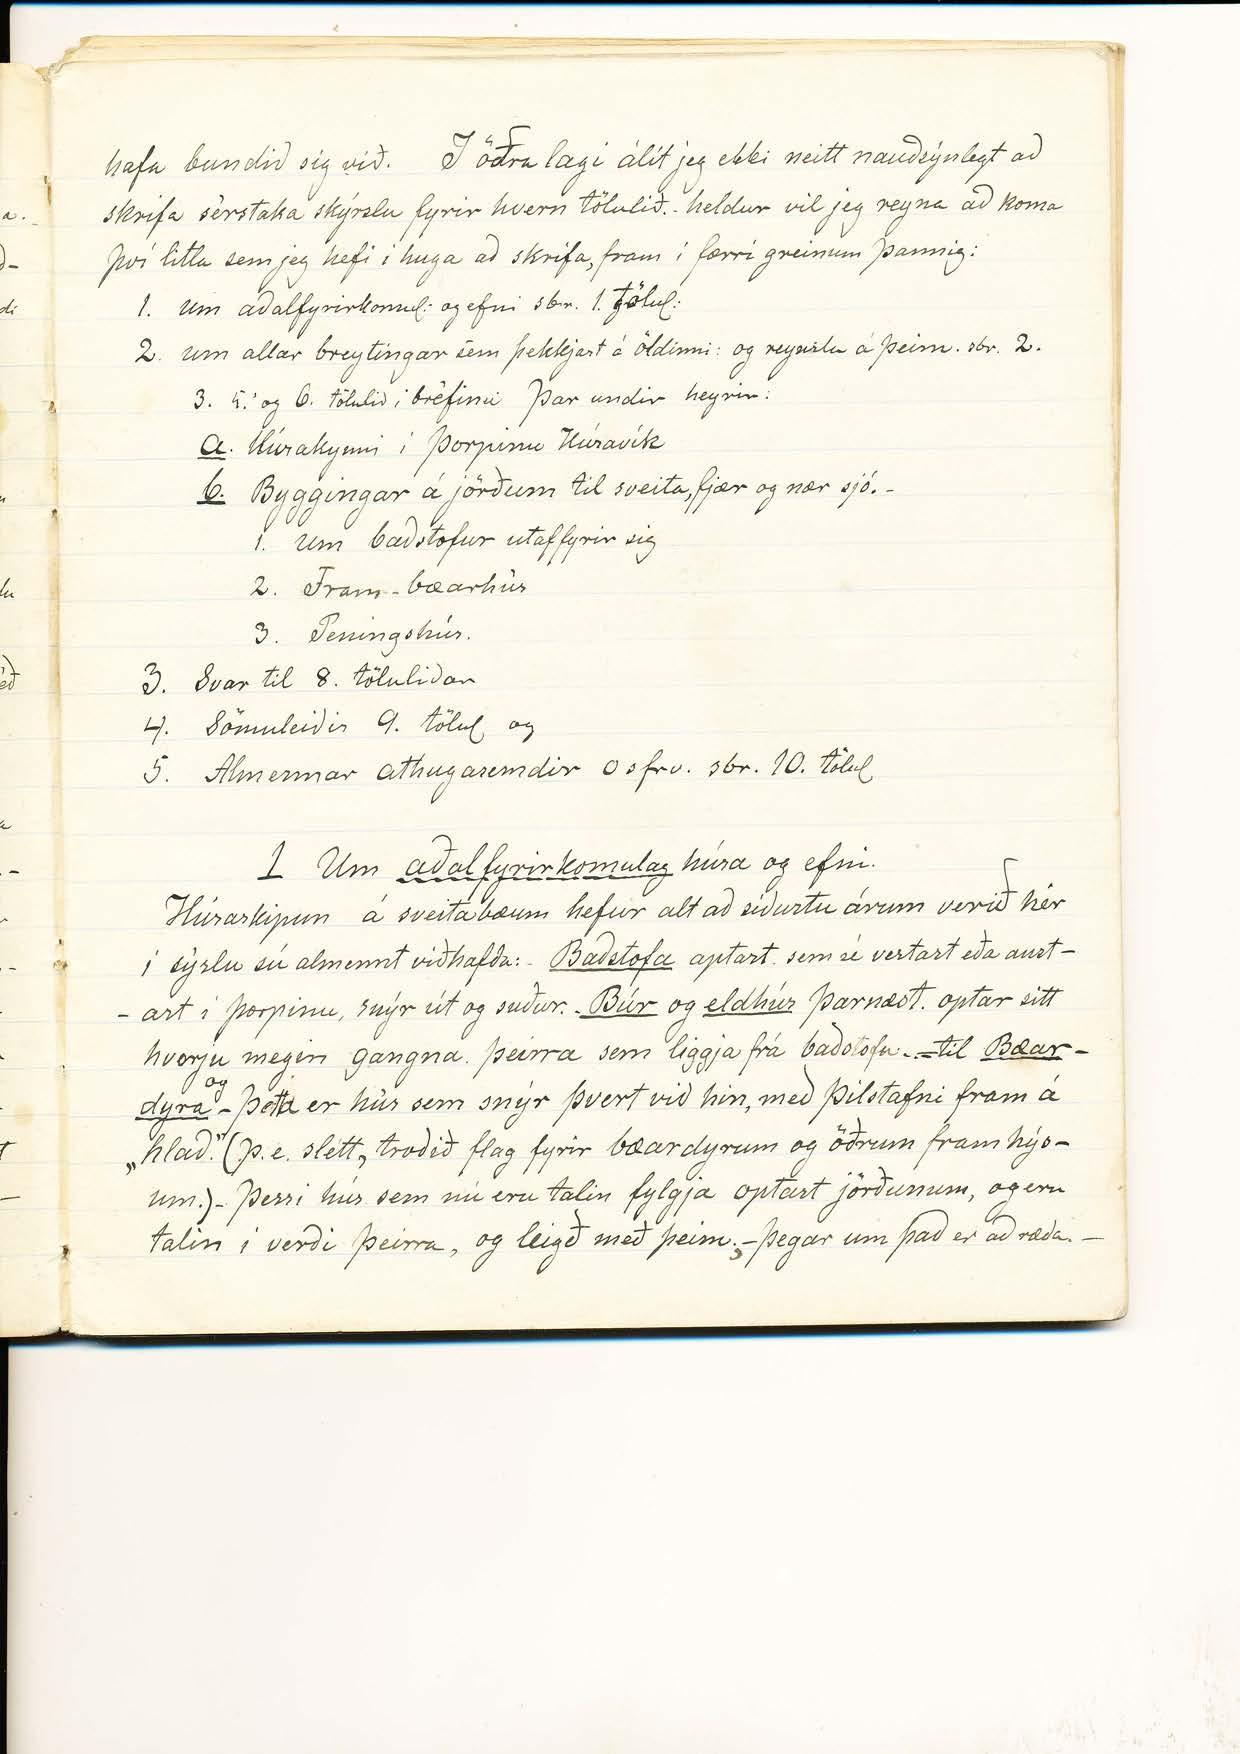 hafa bundið sig við. Í öðru lagi álít jeg ekki neitt nauðsýnlegt að
skrifa sèrstaka skýrslu fyrir hvern tölulið. - heldur vil jeg reyna að koma
því litla sem jeg hefi í huga að skrifa, fram í færri greinum þannig:
1. um aðalfyrirkomul: og efni sbr. 1. tölul:
2. um allar breytingar sem þekkjast á öldinni: og reynslu á þeim. sbr. 2.
3. 5. og 6. tölulið i bréfinu Þar undir heyrir:
a. Húsakynni í þorpinu Húsavík
b. Byggingar á jörðum til sveita, fjær og nær sjó. -
1. um baðstofur utaffyrir sig
2. Fram-bæarhús
3. Peningshús.
3. Svar til 8. töluliðar
4. Sömuleiðis 9. tölul og
5. Almennar athugasemdir osfrv. sbr. 10. tölul
1 Um aðalfyrirkomulag húsa og efni.
Húsaskipun á sveitabæum hefur alt að síðustu árum verið hér
í sýslu sú almennt viðhafða: - Baðstofa aptast. sem sé vestast eða aust-
- ast í þorpinu, snýr út og suður. - Búr og eldhús þarnæst. optar sitt
hvorju megin gangna. þeirra sem liggja frá baðstofu - = til Bæar-
dyra - og þetta er hús sem snýr þvert við hin, með þilstafni fram á
„hlað." (þ.e. slétt, troðið flag fyrir bæardyrum og öðrum framhýs-
um.) - Þessi hús sem nú eru talin fylgja optast jörðunum, og eru
talin í verði þeirra, og leigð með þeim; - þegar um það er að ræða. -